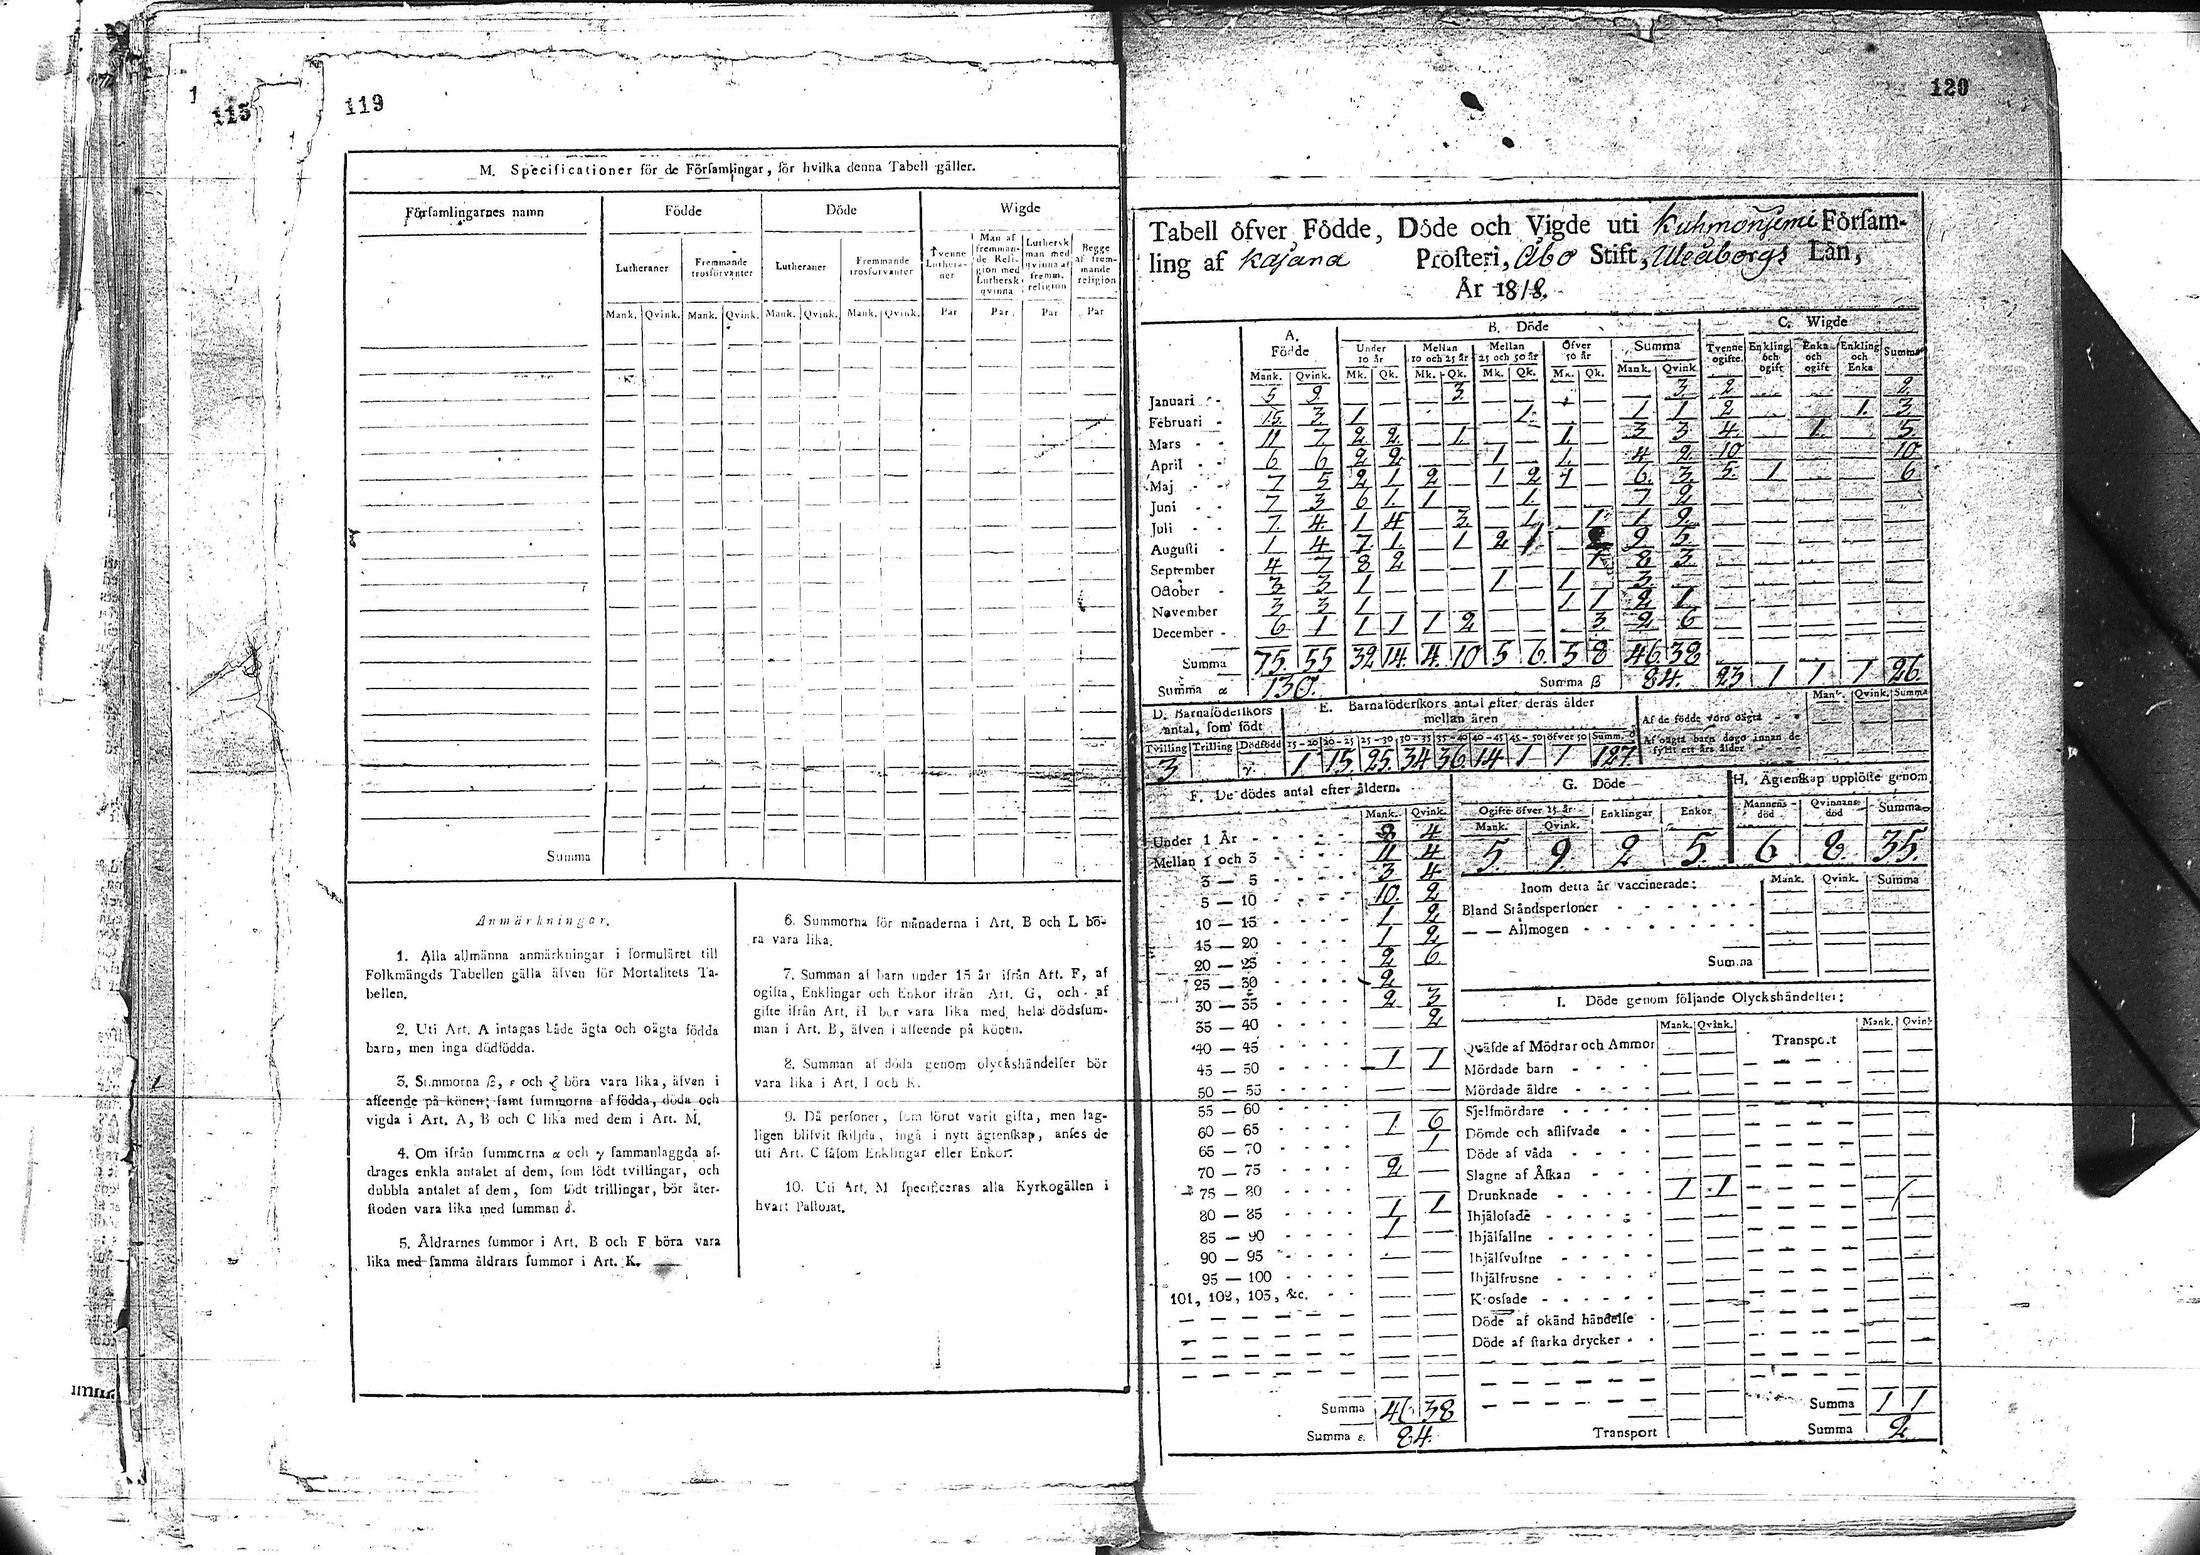 115
119
M. Specificationer för de Församlingar, för hvilka denna Tabell gäller.
Församlingarnes namn
Födde
Döde
Wigde
Lutheraner
Fremmande trosförvanter
Lutheraner
Fremmande trosförvanter
Tvenne Lutheraner
Man af fremmande Religion med Luthersk qvinna
Luthersk man med qvinna af fremm. religion
Begge af fremmande religion
Mank. Qvink. Mank. Qvink. Mank. Qvink. Mank. Qvink. Par Par Par Par
Summa
Anmärkningar.
1. Alla allmänna anmärkningar i formuläret till
Folkmängds Tabellen gälla äfven för Mortalitets Ta-
bellen.
2. Uti Art. A intagas både ägta och oägta födda
barn, men inga dödfödda.
3. Summorna β, ε och ξ böra vara lika, äfven i
afseende på könen; samt summorna af födda, döda och
vigda i Art. A, B och C lika med dem i Art. M.
4. Om ifrån summorna α och γ sammanlaggda af-
drages enkla antalet af dem, som födt tvillingar, och
dubbla antalet af dem, som födt trillingar, bör åter-
stoden vara lika med summan δ.
5. Åldrarnes summor i Art. B och F böra vara
lika med samma åldrars summor i Art. K.
6. Summorna för månaderna i Art. B och L bö-
ra vara lika.
7. Summan af barn under 15 år ifrån Art. F, af
ogifta, Enklingar och Enkor ifrån Art. G, och af
gifte ifrån Art. H bör vara lika med hela dödssum-
man i Art. B, äfven i afseende på könen.
8. Summan af döda genom olyckshändelser bör
vara lika i Art. I och K.
9. Då personer, som förut varit gifta, men lag-
ligen blifvit skiljda, ingå i nytt ägtenskap, anses de
uti Art. C såsom Enklingar eller Enkor.
10. Uti Art. M specificeras alla Kyrkogällen i
hvart Pastorat.
120
Tabell öfver Födde, Döde och Vigde uti Kuhmoniemi Församling
ling af Kajana Prosteri, Åbo Stift, Uleåborgs Län,
År 1818.
A. Födde
B. Döde
C. Wigde
Under 10 år
Mellan 10 och 25 år
Mellan 25 och 50 år
Öfver 50 år
Summa
Tvenne ogifte.
Enkling och ogift
Enka och ogift
Enkling och Enka
Summa
Mank. Qvink. Mk. Qk. Mk. Qk. Mk. Qk. Mk. Qk. Mank. Qvink.
Januari 5 9 3 3 2 2
Februari 15 3 1 1 1 1 2 1 3
Mars 11 7 2 2 1 1 3 3 4 1 5
April 6 6 2 2 1 1 4 2 10 10
Maj 7 5 2 1 2 1 2 1 6 3 5 1 6
Juni 7 3 6 1 1 1 7 2
Juli 7 4 1 4 3 1 1 1 9
Augusti 1 4 7 1 1 2 1 2 9 5
September 4 7 8 2 1 8 3
October 3 3 1 1 1 3
November 3 3 1 1 1 2 1
December 6 1 1 1 1 2 3 2 6
Summa 75 55 32 14 4 10 5 6 5 8 46 38
Summa α 130. Summa β 84. 23 1 1 1 26
D. Barnaföderskors antal, som födt
Tvilling Trilling Dödfödd
3 γ.
E. Barnaföderskors antal efter deras ålder mellan åren
15—20 20—25 25—30 30—35 35—40 40—45 45—50 öfver 50 Summ. δ
1 15 25 34 36 14 1 1 127
Mank. Qvink. Summa
Af de födde voro oägta
Af oägta barn dogo innan de
fyllt ett års ålder
F. De dödes antal efter åldern.
Mank. Qvink.
Under 1 År 8 4
Mellan 1 och 3 11 4
3 — 5 3 4
5 — 10 10 2
10 — 15 1 2
15 — 20 1 2
20 — 25 2 6
25 — 30 2
30 — 35 2 3
35 — 40 2
40 — 45
45 — 50 1 1
50 — 55
55 — 60
60 — 65 1 6
65 — 70 1
70 — 75 2
75 — 80
80 — 85 1 1
85 — 90 1
90 — 95
95 — 100
101, 102, 103, &c.
Summa 46 38
Summa ε. 84.
G. Döde
Ogifte öfver 15 år
Mank. Qvink. Enklingar Enkor
5 9 2 5
H. Ägtenskap upplöste genom
Mannens död Qvinnans död Summa
6 8 35
Inom detta år vaccinerade: Mank. Qvink. Summa
Bland Ståndspersoner
— — Allmogen
Summa
I. Döde genom följande Olyckshändelser:
Mank. Qvink. Transport Mank. Qvink
Qväfde af Mödrar och Ammor
Mördade barn
Mördade äldre
Sjelfmördare
Dömde och aflifvade
Döde af våda
Slagne af Åskan
Drunknade 1 1
Ihjälosade
Ihjälfallne
Ihjälsvultne
Ihjälfrusne
Krossade
Döde af okänd händelse
Döde af starka drycker
Summa 1 1
Transport Summa 2